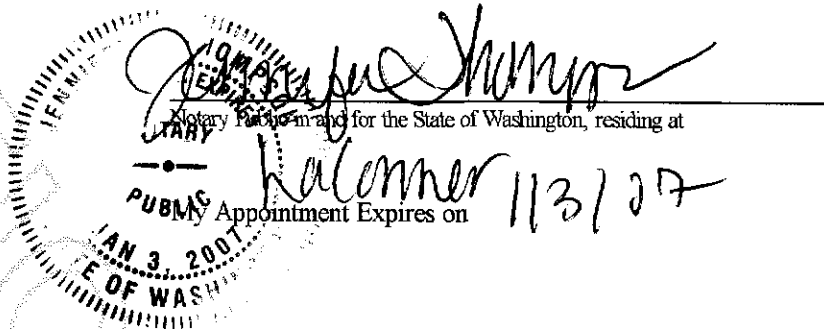 Jennifer Thompson
Notary Public in and for the State of Washington, residing at
LaConner
My Appointment Expires on 1/3/07
JENNIF
OMPS
EXPIRE
TARY
PUBLIC
JAN 3, 2007
E OF WASH